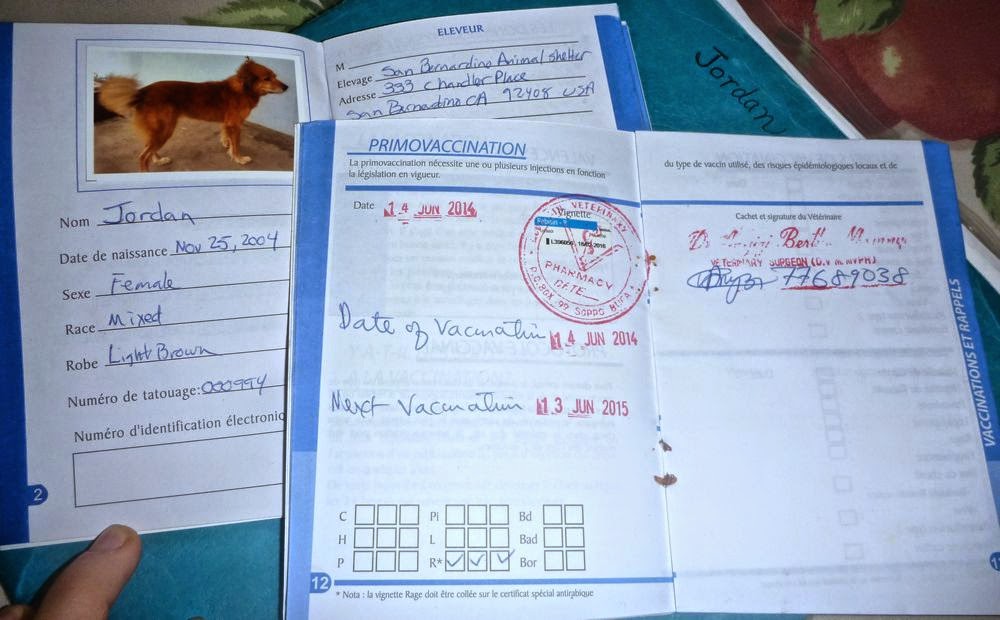 ELEVEUR
M
Elevage San Bernardino Animal shelter
Adresse 333 Chandler Place
San Bernardino CA 92408 USA
Jordan
Nom Jordan
Date de naissance Nov 25, 2004
Sexe Female
Race Mixed
Robe Light Brown
Numéro de tatouage: 000994
Numéro d'identification électroniq
2
PRIMOVACCINATION
La primovaccination nécessite une ou plusieurs injections en fonction
la législation en vigueur.
Date 14 JUN 2014
Vignette
PHARMACY
DATE
P.O.BOX 99 SOPPO BUEA
Date of Vaccination 14 JUN 2014
Next Vaccination 13 JUN 2015
C Pi Bd
H L Bad
P R* Bor
12
* Nota : la vignette Rage doit être collée sur le certificat spécial antirabique
du type de vaccin utilisé, des risques épidémiologiques locaux et de
Cachet et signature du Vétérinaire
VETERINARY SURGEON
77689038
VACCINATIONS ET RAPPELS